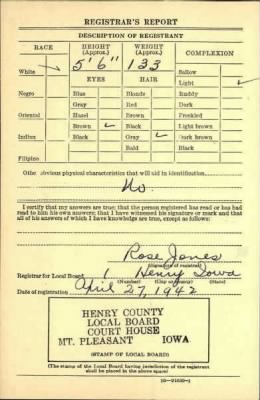 REGISTRAR'S REPORT
DESCRIPTION OF REGISTRANT
RACE HEIGHT (Approx.) WEIGHT (Approx.) COMPLEXION
5' 6" 133
White ✓ Sallow
EYES HAIR Light ✓
Negro Blue Blonde Ruddy
Gray Red Dark
Oriental Hazel Brown Freckled
Brown ✓ Black ✓ Light brown
Indian Black Gray Dark brown
Bald Black
Filipino
Other obvious physical characteristics that will aid in identification
No
I certify that my answers are true; that the person registered has read or has had
read to him his own answers; that I have witnessed his signature or mark and that
all of his answers of which I have knowledge are true, except as follows:
Rose Jones
(Signature of registrar)
Registrar for Local Board 1 Henry Iowa
(Number) (City or county) (State)
Date of registration April 27, 1942
HENRY COUNTY
LOCAL BOARD
COURT HOUSE
MT. PLEASANT IOWA
(STAMP OF LOCAL BOARD)
(The stamp of the Local Board having jurisdiction of the registrant
shall be placed in the above space.)